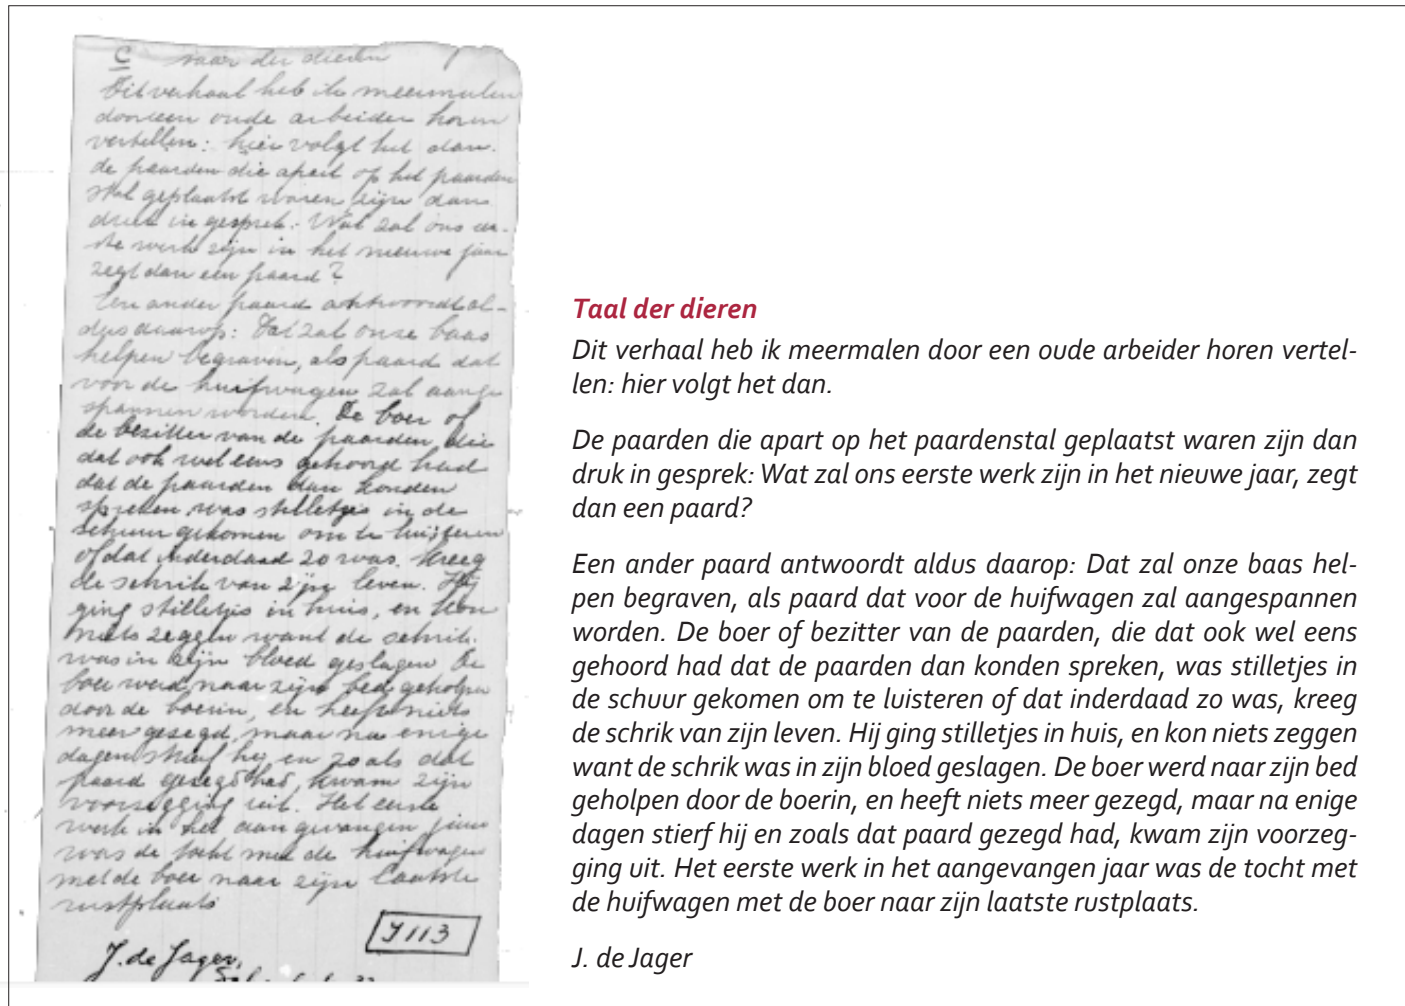 C naar der dieren
Dit verhaal heb ik meermalen
door een oude arbeider horen
vertellen: hier volgt het dan.
de paarden die apart op het paarden
stal geplaatst waren zijn dan
druk in gesprek: Wat zal ons eer-
ste werk zijn in het nieuwe jaar
zegt dan een paard?
Een ander paard antwoordt al-
dus daarop: Dat zal onze baas
helpen begraven, als paard dat
voor de huifwagen zal aange
spannen worden. De boer of
de bezitter van de paarden, die
dat ook wel eens gehoord had
dat de paarden dan konden
spreken was stilletjes in de
schuur gekomen om te luisteren
of dat inderdaad zo was. kreeg
de schrik van zijn leven. Hij
ging stilletjes in huis, en kon
niets zeggen want de schrik
was in zijn bloed geslagen De
boer werd naar zijn bed geholpen
door de boerin, en heeft niets
meer gezegd, maar na enige
dagen stierf hij en zoals dat
paard gezegd had, kwam zijn
voorzegging uit. Het eerste
werk in het aangevangen jaar
was de tocht met de huifwagen
met de boer naar zijn laatste
rustplaats
J 113
J. de Jager,
Taal der dieren
Dit verhaal heb ik meermalen door een oude arbeider horen vertel-
len: hier volgt het dan.
De paarden die apart op het paardenstal geplaatst waren zijn dan
druk in gesprek: Wat zal ons eerste werk zijn in het nieuwe jaar, zegt
dan een paard?
Een ander paard antwoordt aldus daarop: Dat zal onze baas hel-
pen begraven, als paard dat voor de huifwagen zal aangespannen
worden. De boer of bezitter van de paarden, die dat ook wel eens
gehoord had dat de paarden dan konden spreken, was stilletjes in
de schuur gekomen om te luisteren of dat inderdaad zo was, kreeg
de schrik van zijn leven. Hij ging stilletjes in huis, en kon niets zeggen
want de schrik was in zijn bloed geslagen. De boer werd naar zijn bed
geholpen door de boerin, en heeft niets meer gezegd, maar na enige
dagen stierf hij en zoals dat paard gezegd had, kwam zijn voorzeg-
ging uit. Het eerste werk in het aangevangen jaar was de tocht met
de huifwagen met de boer naar zijn laatste rustplaats.
J. de Jager